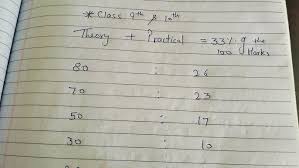 * Class 9th & 10th
Theory + Practical = 33% of the
100 Marks
80 : 26
70 : 23
50 : 17
30 : 10